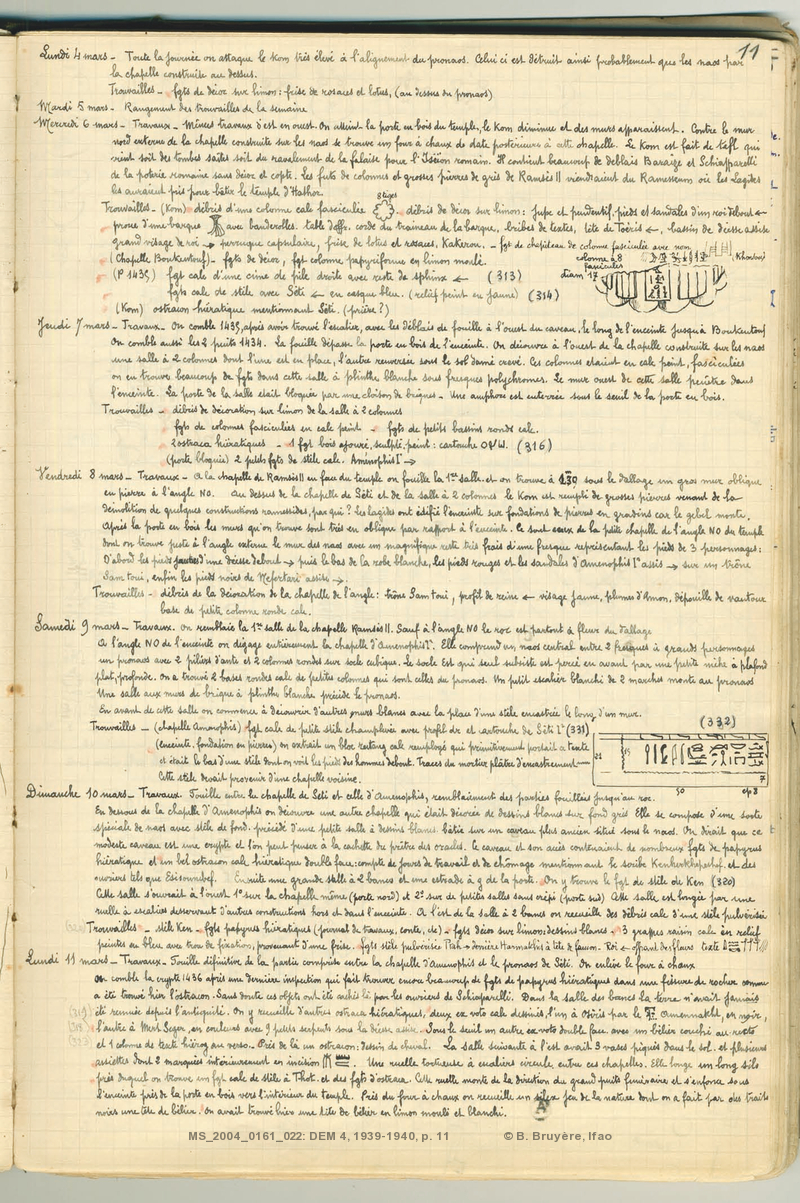 11
Lundi 4 mars - Toute la journée on attaque le Kom très élevé à l'alignement du pronaos. Celui ci est détruit ainsi probablement que les naos par
la chapelle construite au dessus.
Trouvailles - fgts de décor sur limon: frise de rosaces et lotus, (au dessus du pronaos)
Mardi 5 mars - Rangement des trouvailles de la semaine
Mercredi 6 mars - Travaux - Mêmes travaux d'est en ouest. On atteint la porte en bois du temple, le Kom diminue et des murs apparaissent. Contre le mur
nord externe de la chapelle construite sur les naos se trouve un four à chaux de date postérieure à cette chapelle. Le Kom est fait de tafl qui
vient soit des tombes saïtes soit du ravalement de la falaise pour l'Iseion romain. Il contient beaucoup de déblais Baraize et Schiapparelli
de la poterie romaine sans décor et copte. Les futs de colonnes et grosses pierres de grès de Ramsès II viendraient du Ramesseum où les Lagides
les auraient pris pour bâtir le temple d'Hathor.
8 tiges
Trouvailles - (Kom) débris d'une colonne calc fasciculée débris de décor sur limon: jupe et pendentif, pieds et sandales d'un roi debout ←
proue d'une barque avec banderolles. table d'offr. corde du traineau de la barque, bribes de textes, tête de Toëris ←, bassin de déesse assise
grand visage de roi → perruque capsulaire, frise de lotus et rosaces, Kakerou. - fgt de chapiteau de colonne fasciculée avec nom
(Chapelle Boukentouf) - fgts de décor, fgt colonne papyriforme en limon moulé. colonne à 8
fascicules
(P 1435) fgt calc d'une cime de pile droite avec reste de sphinx ← (313) diam 17
fgts calc de stèle avec Séti ← en casque bleu. (relief peint en jaune) (314)
(Kom) ostracon hiératique mentionnant Séti. (prière?)
Jeudi 7 mars - Travaux. On comble 1435, après avoir trouvé l'escalier, avec les déblais de fouille à l'ouest du caveau, le long de l'enceinte jusqu'à Boukentouf
On comble aussi les 2 puits 1434. La fouille dépasse la porte en bois de l'enceinte. On découvre à l'ouest de la chapelle construite sur les naos
une salle à 2 colonnes dont l'une est en place, l'autre renversée sous le sol damé crevé. Ces colonnes étaient en calc peint, fasciculées
on en trouve beaucoup de fgts dans cette salle à plinthe blanche sous fresques polychromes. Le mur ouest de cette salle pénètre dans
l'enceinte. La porte de la salle était bloquée par une cloison de briques. Une amphore est enterrée sous le seuil de la porte en bois.
Trouvailles - débris de décoration sur limon de la salle à 2 colonnes
fgts de colonnes fasciculées en calc peint - fgts de petits bassins ronds calc.
2 ostraca hiératiques - 1 fgt bois ajouré, sculpté, peint: cartouche (316)
(porte bloquée) 2 petits fgts de stèle calc. Aménophis Iᵉʳ →
Vendredi 8 mars - Travaux - A la chapelle de Ramsès II en face du temple on fouille la 1ʳᵉ salle et on trouve à sous le dallage un gros mur oblique
en pierre à l'angle NO. Au dessus de la chapelle de Séti et de la salle à 2 colonnes le Kom est rempli de grosses pierres venant de la
démolition de quelques constructions ramessides, par qui? les Lagides ont édifié l'enceinte sur fondations de pierres en gradins car le gebel monte.
Après la porte en bois les murs qu'on trouve sont très en oblique par rapport à l'enceinte. Ce sont ceux de la petite chapelle de l'angle NO du temple
dont on trouve juste à l'angle externe le mur des naos avec un magnifique reste très frais d'une fresque représentant les pieds de 3 personnages:
D'abord les pieds jaunes d'une déesse debout → puis le bas de la robe blanche, les pieds rouges et les sandales d'Aménophis Iᵉʳ assis → sur un trône
Sam toui, enfin les pieds noirs de Nefertari assise →.
Trouvailles - débris de la décoration de la chapelle de l'angle: trône Sam toui, profil de reine ← visage jaune, plumes d'Amon, dépouille de vautour
base de petite colonne ronde calc.
Samedi 9 mars - Travaux. On remblaie la 1ʳᵉ salle de la chapelle Ramsès II. Sauf à l'angle NO le roc est partout à fleur du dallage
A l'angle NO de l'enceinte on dégage entièrement la chapelle d'Amenophis Iᵉʳ. Elle comprend un naos central entre 2 fresques à grands personnages
un pronaos avec 2 piliers d'ante et 2 colonnes rondes sur socle cubique. Le socle est qui seul subsiste est percé en avant par une petite niche à plafond
plat, profonde. On a trouvé 2 bases rondes calc de petites colonnes qui sont celles du pronaos. Un petit escalier blanchi de 2 marches monte au pronaos
Une salle aux murs de brique à plinthe blanche précède le pronaos.
En avant de cette salle on commence à découvrir d'autres murs blancs avec la place d'une stèle encastrée le long d'un mur.
Trouvailles - (chapelle Amenophis) fgt calc de petite stèle champlevée avec profil dr et cartouche de Séti Iᵉʳ (331) (332)
(enceinte, fondation en pierres) on extrait un bloc rectang calc remployé qui primitivement portait ce texte
et était le bas d'une stèle dont on voit les pieds des hommes debout. Traces du mortier plâtre d'encastrement
Cette stèle devait provenir d'une chapelle voisine. 50 ep 8
Dimanche 10 mars - Travaux. Fouille entre la chapelle de Séti et celle d'Amenophis, remblaiement des parties fouillées jusqu'au roc.
En dessous de la chapelle d'Amenophis on découvre une autre chapelle qui était décorée de dessins blancs sur fond gris. Elle se compose d'une sorte
spéciale de naos avec stèle de fond, précédé d'une petite salle à dessins blancs bâtie sur un caveau plus ancien situé sous le naos. On dirait que ce
modeste caveau est une crypte et l'on peut penser à la cachette du prêtre des oracles. Le caveau et son accès contenaient de nombreux fgts de papyrus
hiératique et un bel ostracon calc hiératique double face: compte de jours de travail et de chômage mentionnant le scribe Kenherkhepeshef et des
ouvriers tels que Esisounebef. Ensuite une grande salle à 2 bancs et une estrade à g de la porte. On y trouve le fgt de stèle de Ken (320)
Cette salle s'ouvrait à l'ouest 1° sur la chapelle même (porte nord) et 2° sur de petites salles sans crépi (porte sud) Cette salle est longée par une
ruelle à escaliers desservant d'autres constructions hors et dans l'enceinte. A l'est de la salle à 2 bancs on recueille des débris calc d'une stèle pulvérisée
Trouvailles - stèle Ken - fgts papyrus hiératiques (journal de travaux, conte, etc) - fgts décor sur limon: dessins blancs - 3 grappes raisin calc en relief
peintes en bleu avec trou de fixation, provenant d'une frise. Fgts stèle pulvérisée Ptah → derrière Harmakhis à tête de faucon. Roi ← offrant des fleurs texte
Lundi 11 mars - Travaux - Fouille définitive de la partie comprise entre la chapelle d'Amenophis et le pronaos de Séti. On enlève le four à chaux
On comble la crypte 1436 après une dernière inspection qui fait trouver encore beaucoup de fgts de papyrus hiératiques dans une fissure de rocher comme
a été trouvé hier l'ostracon. Sans doute ces objets ont été cachés là par les ouvriers de Schiaparelli. Dans la salle des bancs la terre n'avait jamais
été remuée depuis l'antiquité. On y recueille d'autres ostraca hiératiques, deux ex voto calc dessinés, l'un à Osiris par le Amennakht, en noir,
l'autre à Mert Seger, en couleurs avec 9 petits serpents sous la déesse assise. Sous le seuil un autre ex voto double face avec un bélier couché au recto
et 1 colonne de texte hiérog au verso. Près de là un ostracon: dessin de cheval. La salle suivante à l'est avait 3 vases piqués dans le sol et plusieurs
assiettes dont 2 marquées intérieurement en incision. Une ruelle tortueuse à escaliers circule entre ces chapelles. Elle longe un long silo
près duquel on trouve un fgt calc de stèle à Thot. et des fgts d'ostraca. Cette ruelle monte de la direction du grand puits funéraire et s'enfonce sous
l'enceinte près de la porte en bois vers l'intérieur du temple. Près du four à chaux on recueille un silex jeu de la nature dont on a fait par des traits
noirs une tête de bélier. On avait trouvé hier une tête de bélier en limon moulé et blanchi.
MS_2004_0161_022: DEM 4, 1939-1940, p. 11 © B. Bruyère, Ifao